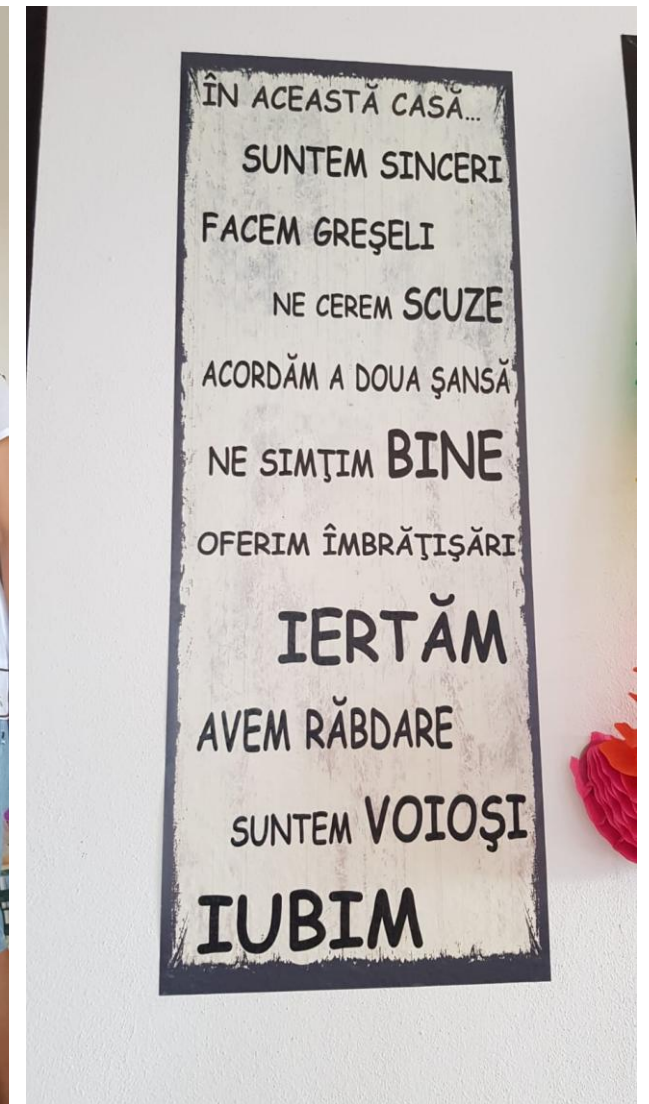 ÎN ACEASTĂ CASĂ...
SUNTEM SINCERI
FACEM GREŞELI
NE CEREM SCUZE
ACORDĂM A DOUA ŞANSĂ
NE SIMŢIM BINE
OFERIM ÎMBRĂŢIŞĂRI
IERTĂM
AVEM RĂBDARE
SUNTEM VOIOŞI
IUBIM